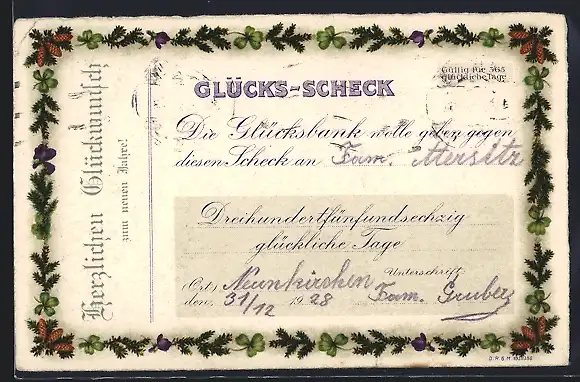 Herzlichen Glückwunsch
zum neuen Jahre!
GLÜCKS-SCHECK
Gültig für 365
glückliche Tage
Die Glücksbank wolle geben gegen
diesen Scheck an Fam. Mersitz
Dreihundertfünfundsechzig
glückliche Tage
(Ort) Neunkirchen Unterschrift:
den, 31/12 1928 Fam. Gruber
D.R.G.M.